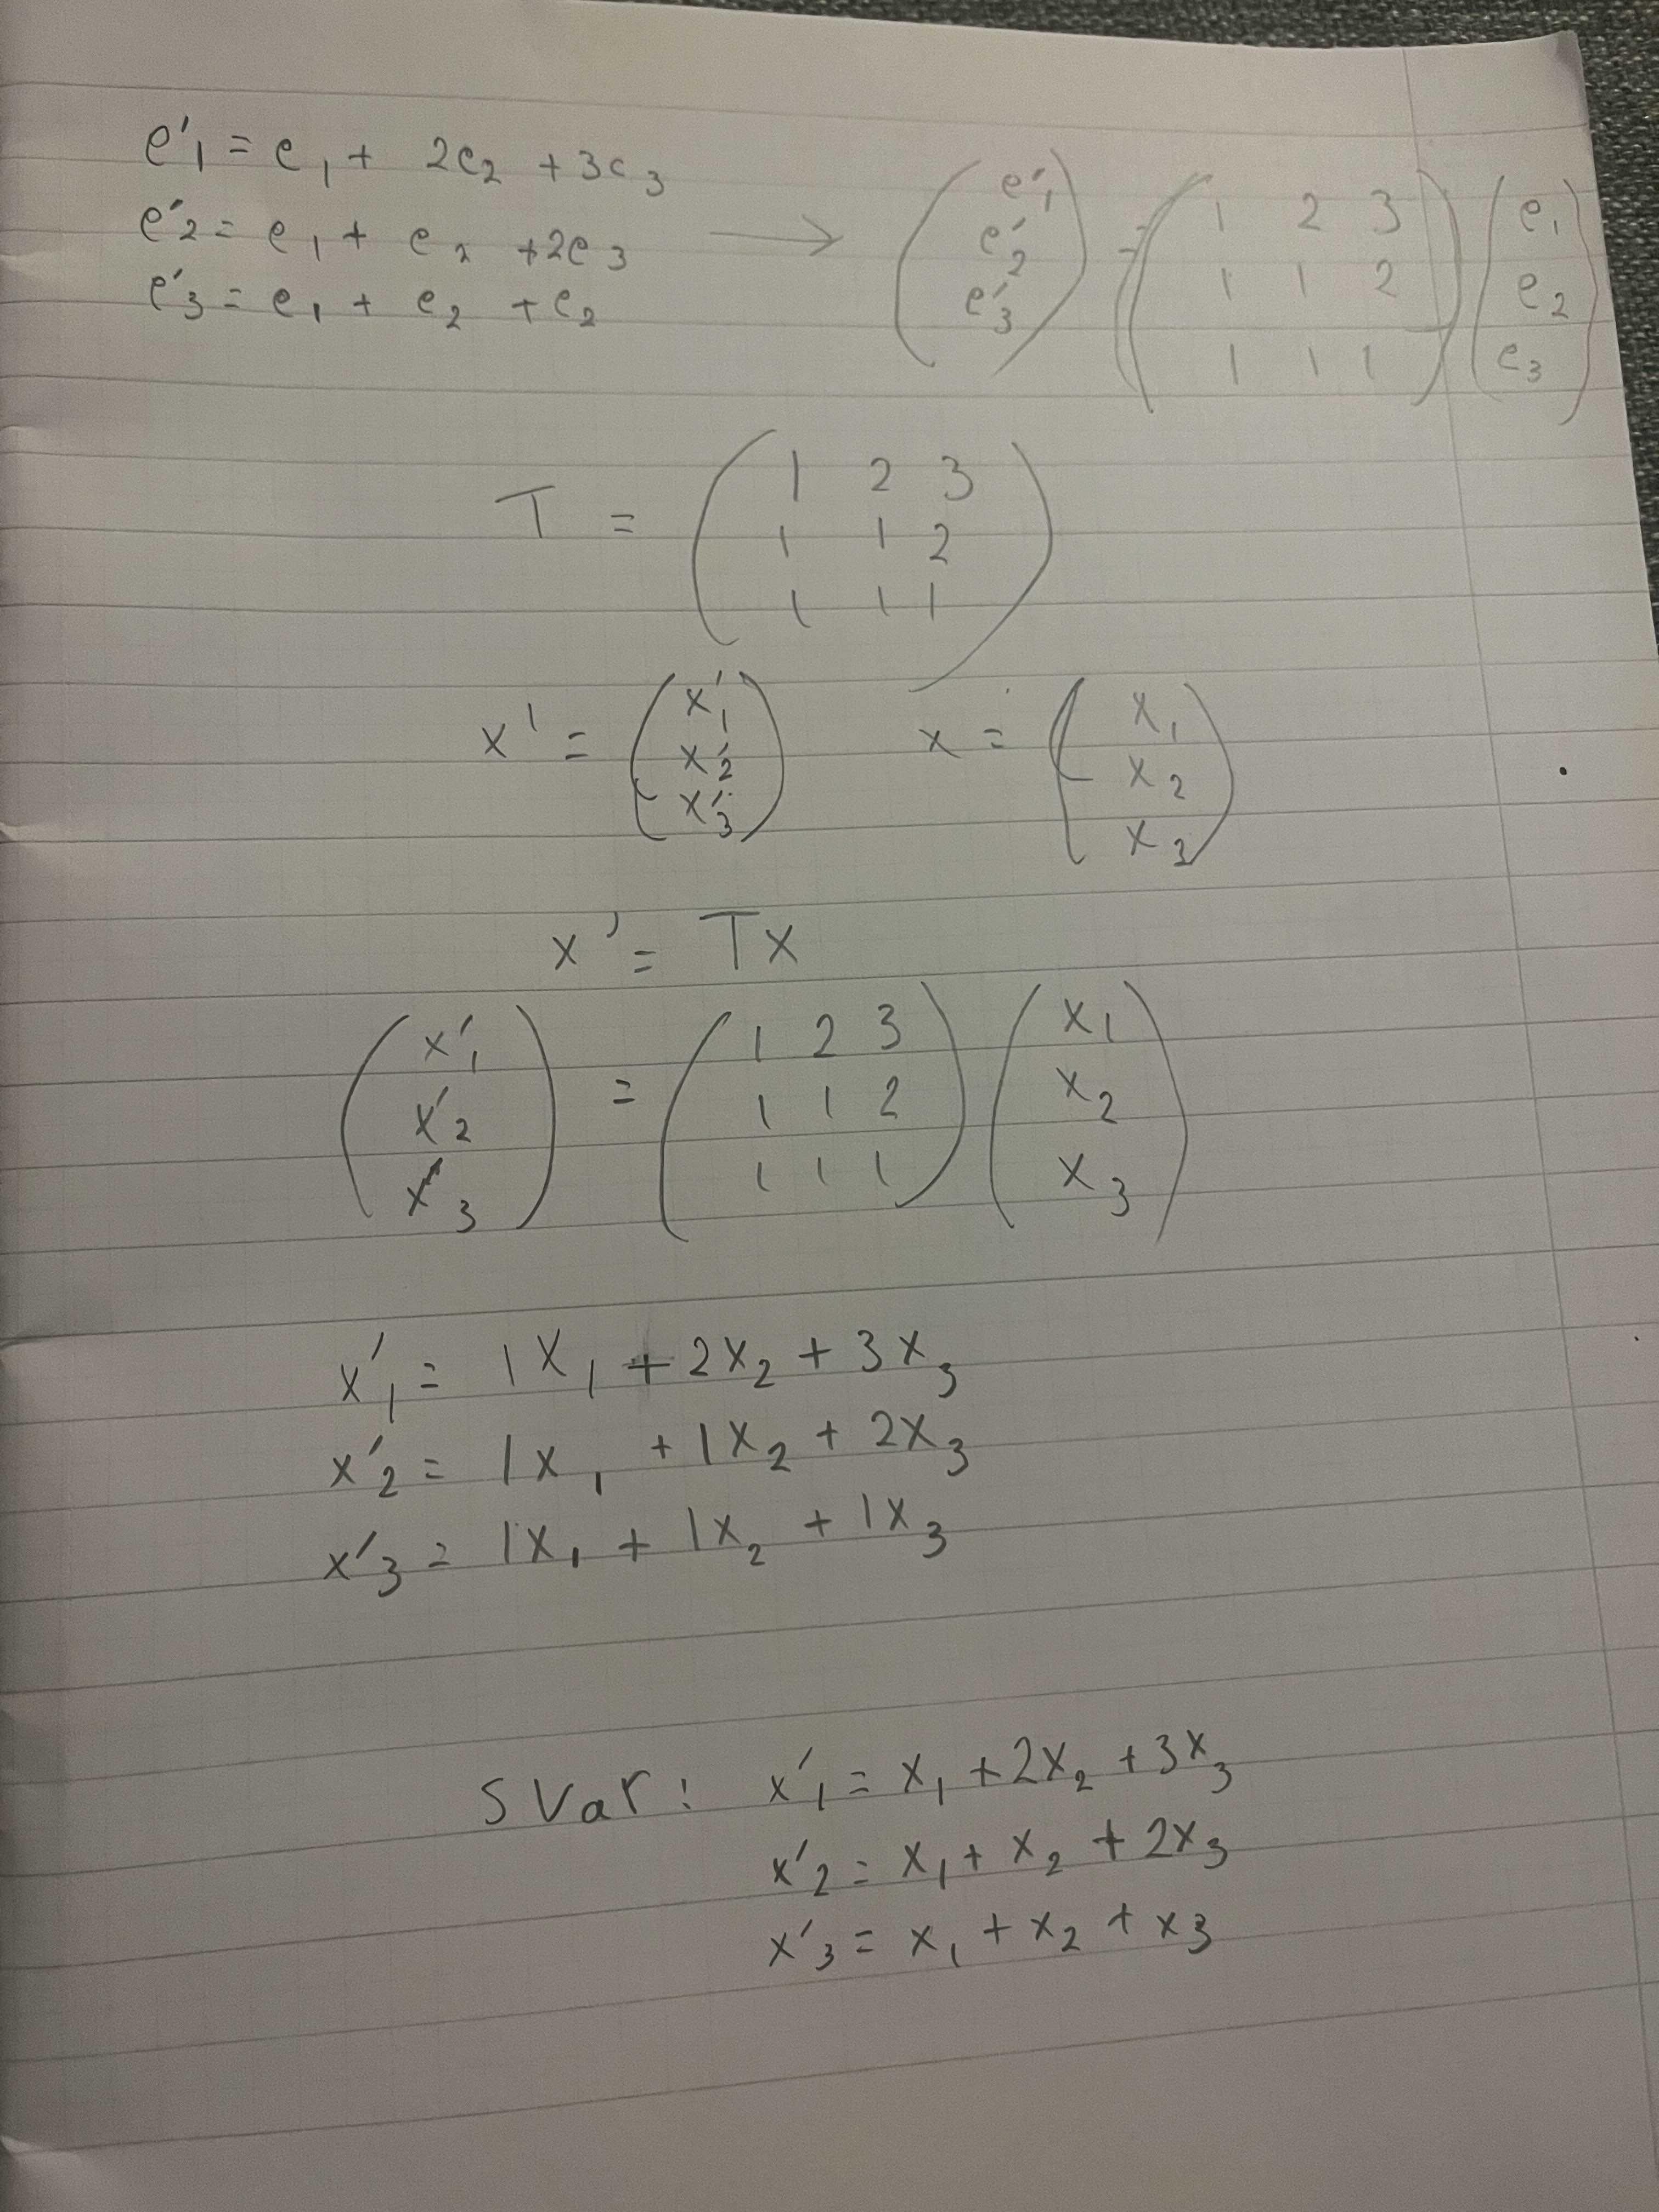 e'₁ = e₁ + 2e₂ + 3e₃
e'₂ = e₁ + e₂ + 2e₃
e'₃ = e₁ + e₂ + e₂
→ (e'₁ e'₂ e'₃) = (1 2 3
1 1 2
1 1 1) (e₁ e₂ e₃)
T = (1 2 3
1 1 2
1 1 1)
x' = (x'₁ x'₂ x'₃) x = (x₁ x₂ x₃)
x' = Tx
(x'₁ x'₂ x'₃) = (1 2 3
1 1 2
1 1 1) (x₁ x₂ x₃)
x'₁ = 1x₁ + 2x₂ + 3x₃
x'₂ = 1x₁ + 1x₂ + 2x₃
x'₃ = 1x₁ + 1x₂ + 1x₃
Svar: x'₁ = x₁ + 2x₂ + 3x₃
x'₂ = x₁ + x₂ + 2x₃
x'₃ = x₁ + x₂ + x₃